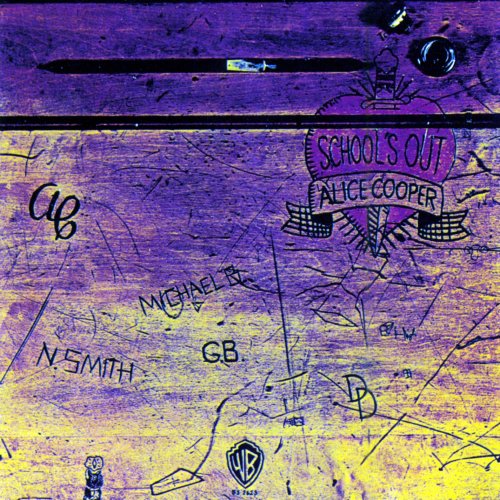 SCHOOL'S OUT
ALICE COOPER
ac
MICHAEL B.
G.B.
N. SMITH
DD
WB
BS 2623